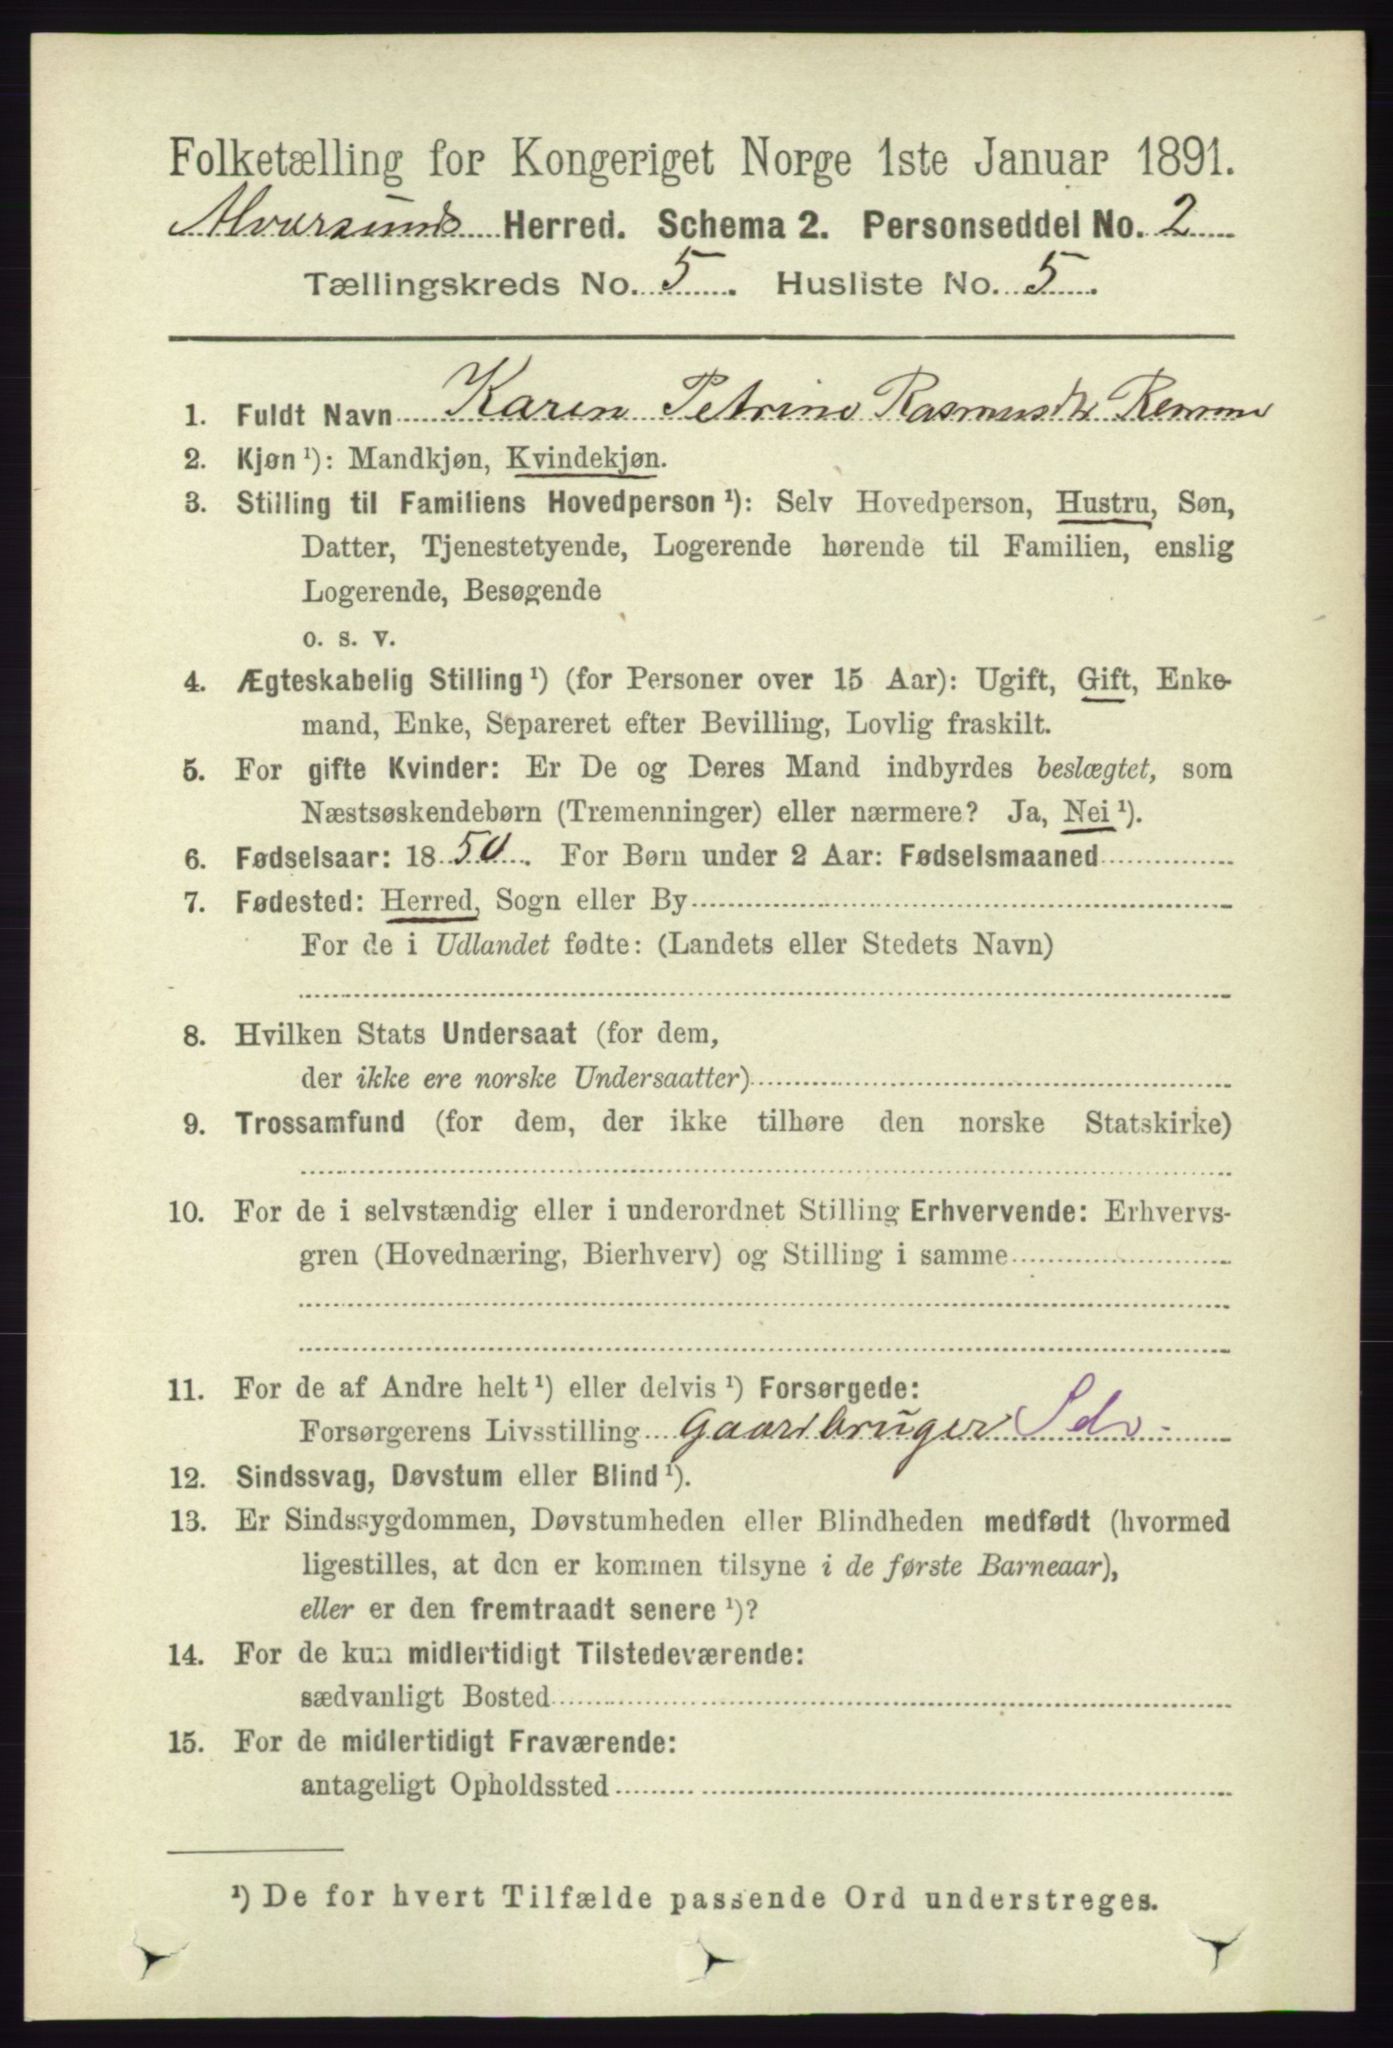 Folketælling for Kongeriget Norge 1ste Januar 1891.
Alversunds Herred. Schema 2. Personseddel No. 2
Tællingskreds No. 5. Husliste No. 5.
1. Fuldt Navn Karen Petrine Rasmusdtr Remme
2. Kjøn ¹): Mandkjøn, Kvindekjøn.
3. Stilling til Familiens Hovedperson ¹): Selv Hovedperson, Hustru, Søn,
Datter, Tjenestetyende, Logerende hørende til Familien, enslig
Logerende, Besøgende
o. s. v.
4. Ægteskabelig Stilling ¹) (for Personer over 15 Aar): Ugift, Gift, Enke-
mand, Enke, Separeret efter Bevilling, Lovlig fraskilt.
5. For gifte Kvinder: Er De og Deres Mand indbyrdes beslægtet, som
Næstsøskendebørn (Tremenninger) eller nærmere? Ja, Nei ¹).
6. Fødselsaar: 1850. For Børn under 2 Aar: Fødselsmaaned
7. Fødested: Herred, Sogn eller By
For de i Udlandet fødte: (Landets eller Stedets Navn)
8. Hvilken Stats Undersaat (for dem,
der ikke ere norske Undersaatter)
9. Trossamfund (for dem, der ikke tilhøre den norske Statskirke)
10. For de i selvstændig eller i underordnet Stilling Erhvervende: Erhvervs-
gren (Hovednæring, Bierhverv) og Stilling i samme
11. For de af Andre helt ¹) eller delvis ¹) Forsørgede:
Forsørgerens Livsstilling Gaardbruger
12. Sindssvag, Døvstum eller Blind ¹).
13. Er Sindssygdommen, Døvstumheden eller Blindheden medfødt (hvormed
ligestilles, at den er kommen tilsyne i de første Barneaar),
eller er den fremtraadt senere ¹)?
14. For de kun midlertidigt Tilstedeværende:
sædvanligt Bosted
15. For de midlertidigt Fraværende:
antageligt Opholdssted
¹) De for hvert Tilfælde passende Ord understreges.